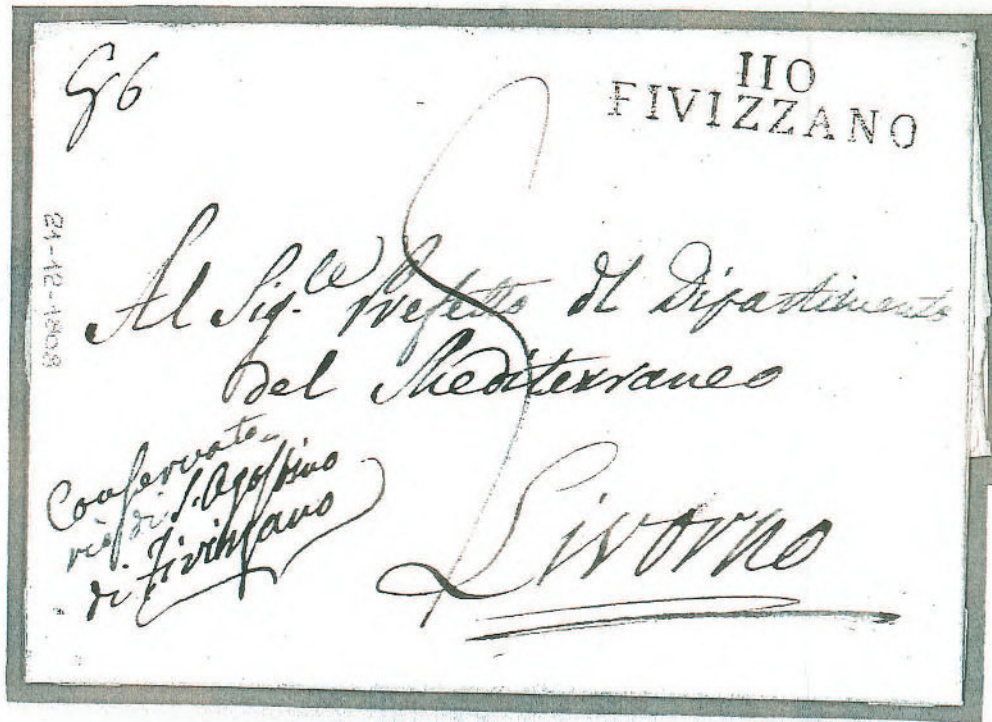 G 6
110
FIVIZZANO
21-12-1808
Al Sig.le Prefetto dl Dipartimento
del Mediterraneo
Conservato-
rio di S. Agostino
di Fivizzano
Livorno